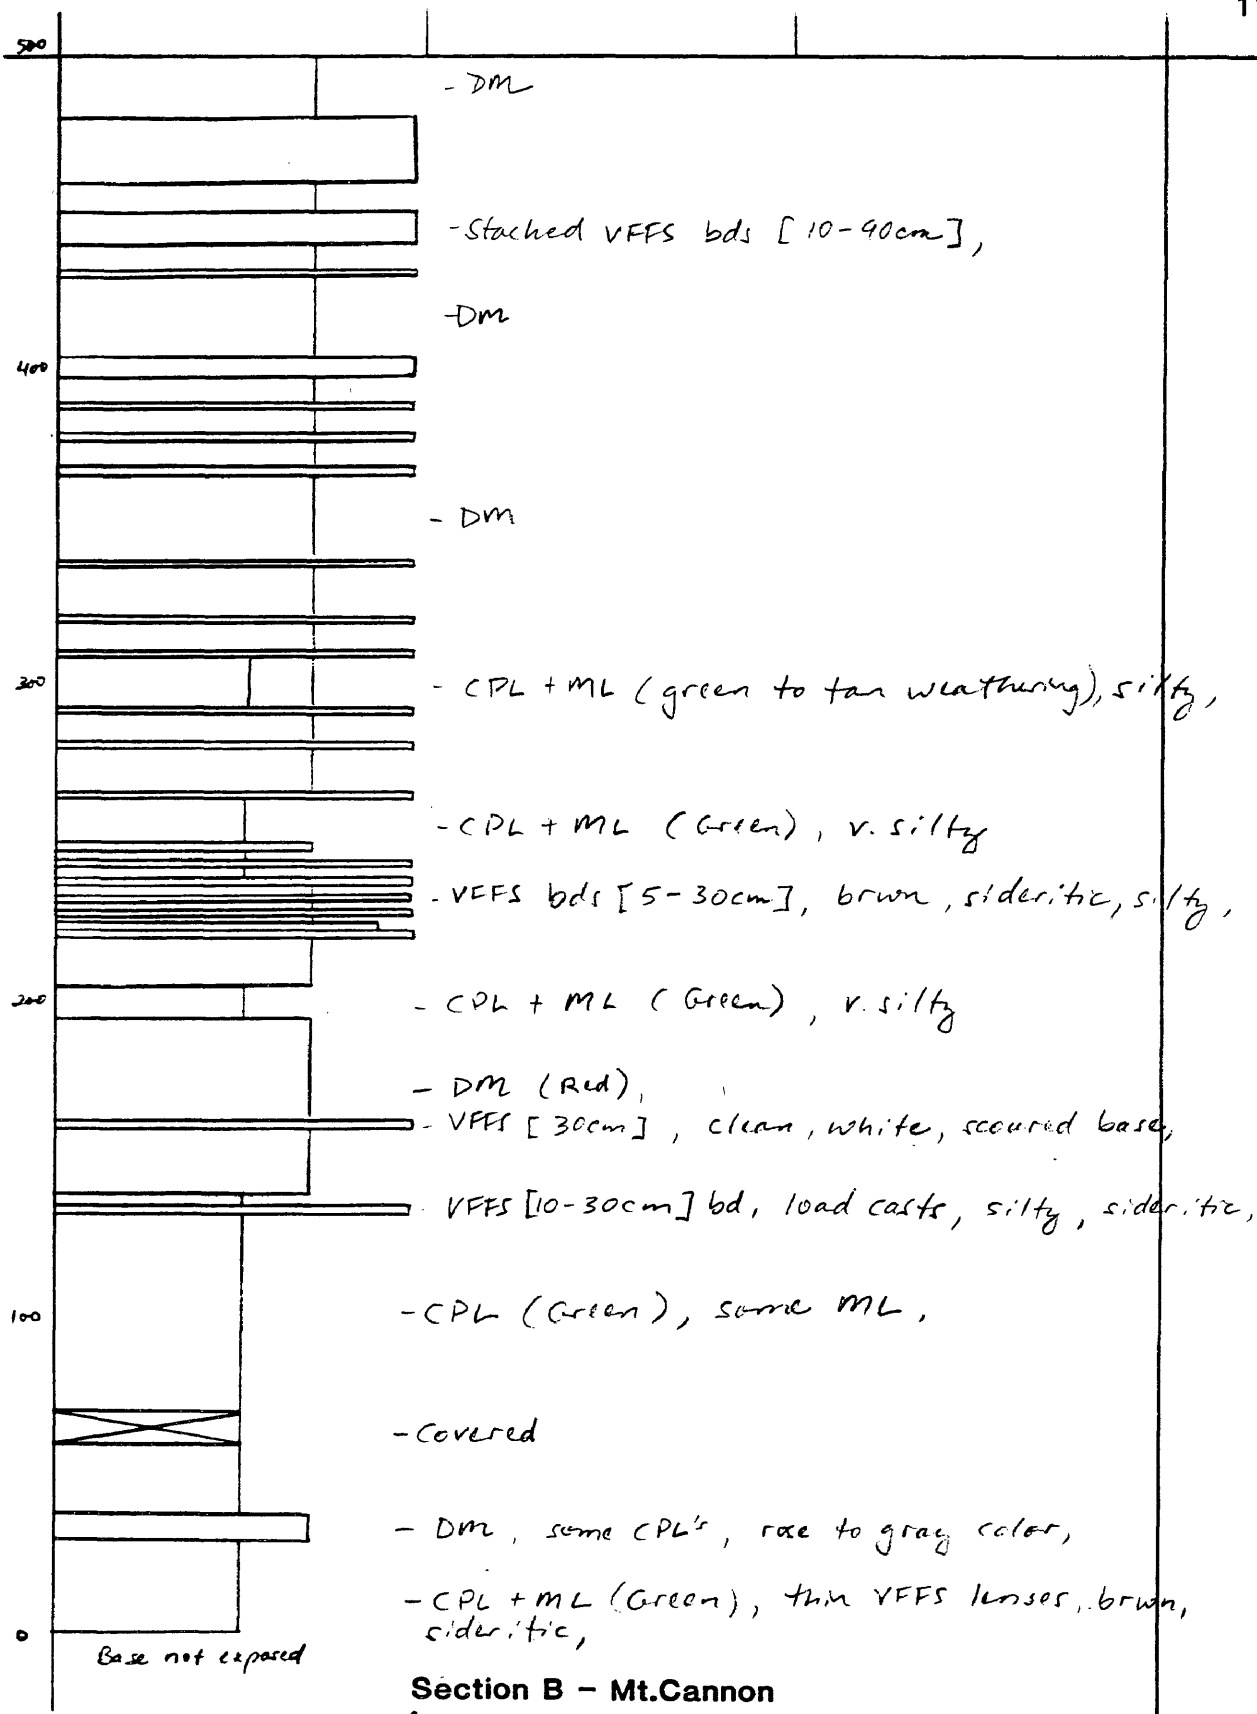 11
500
- DM
- Stacked VFFS bds [10-90cm],
- DM
400
- DM
300
- CPL + ML (green to tan weathering), silty,
- CPL + ML (Green), v. silty
- VFFS bds [5-30cm], brwn, sideritic, silty,
200
- CPL + ML (Green), v. silty
- DM (Red),
- VFFS [30cm], clean, white, scoured base,
- VFFS [10-30cm] bd, load casts, silty, sideritic,
100
- CPL (Green), some ML,
- Covered
- DM, some CPL's, rose to gray color,
- CPL + ML (Green), thin VFFS lenses, brwn,
0
sideritic,
Base not exposed
Section B - Mt.Cannon